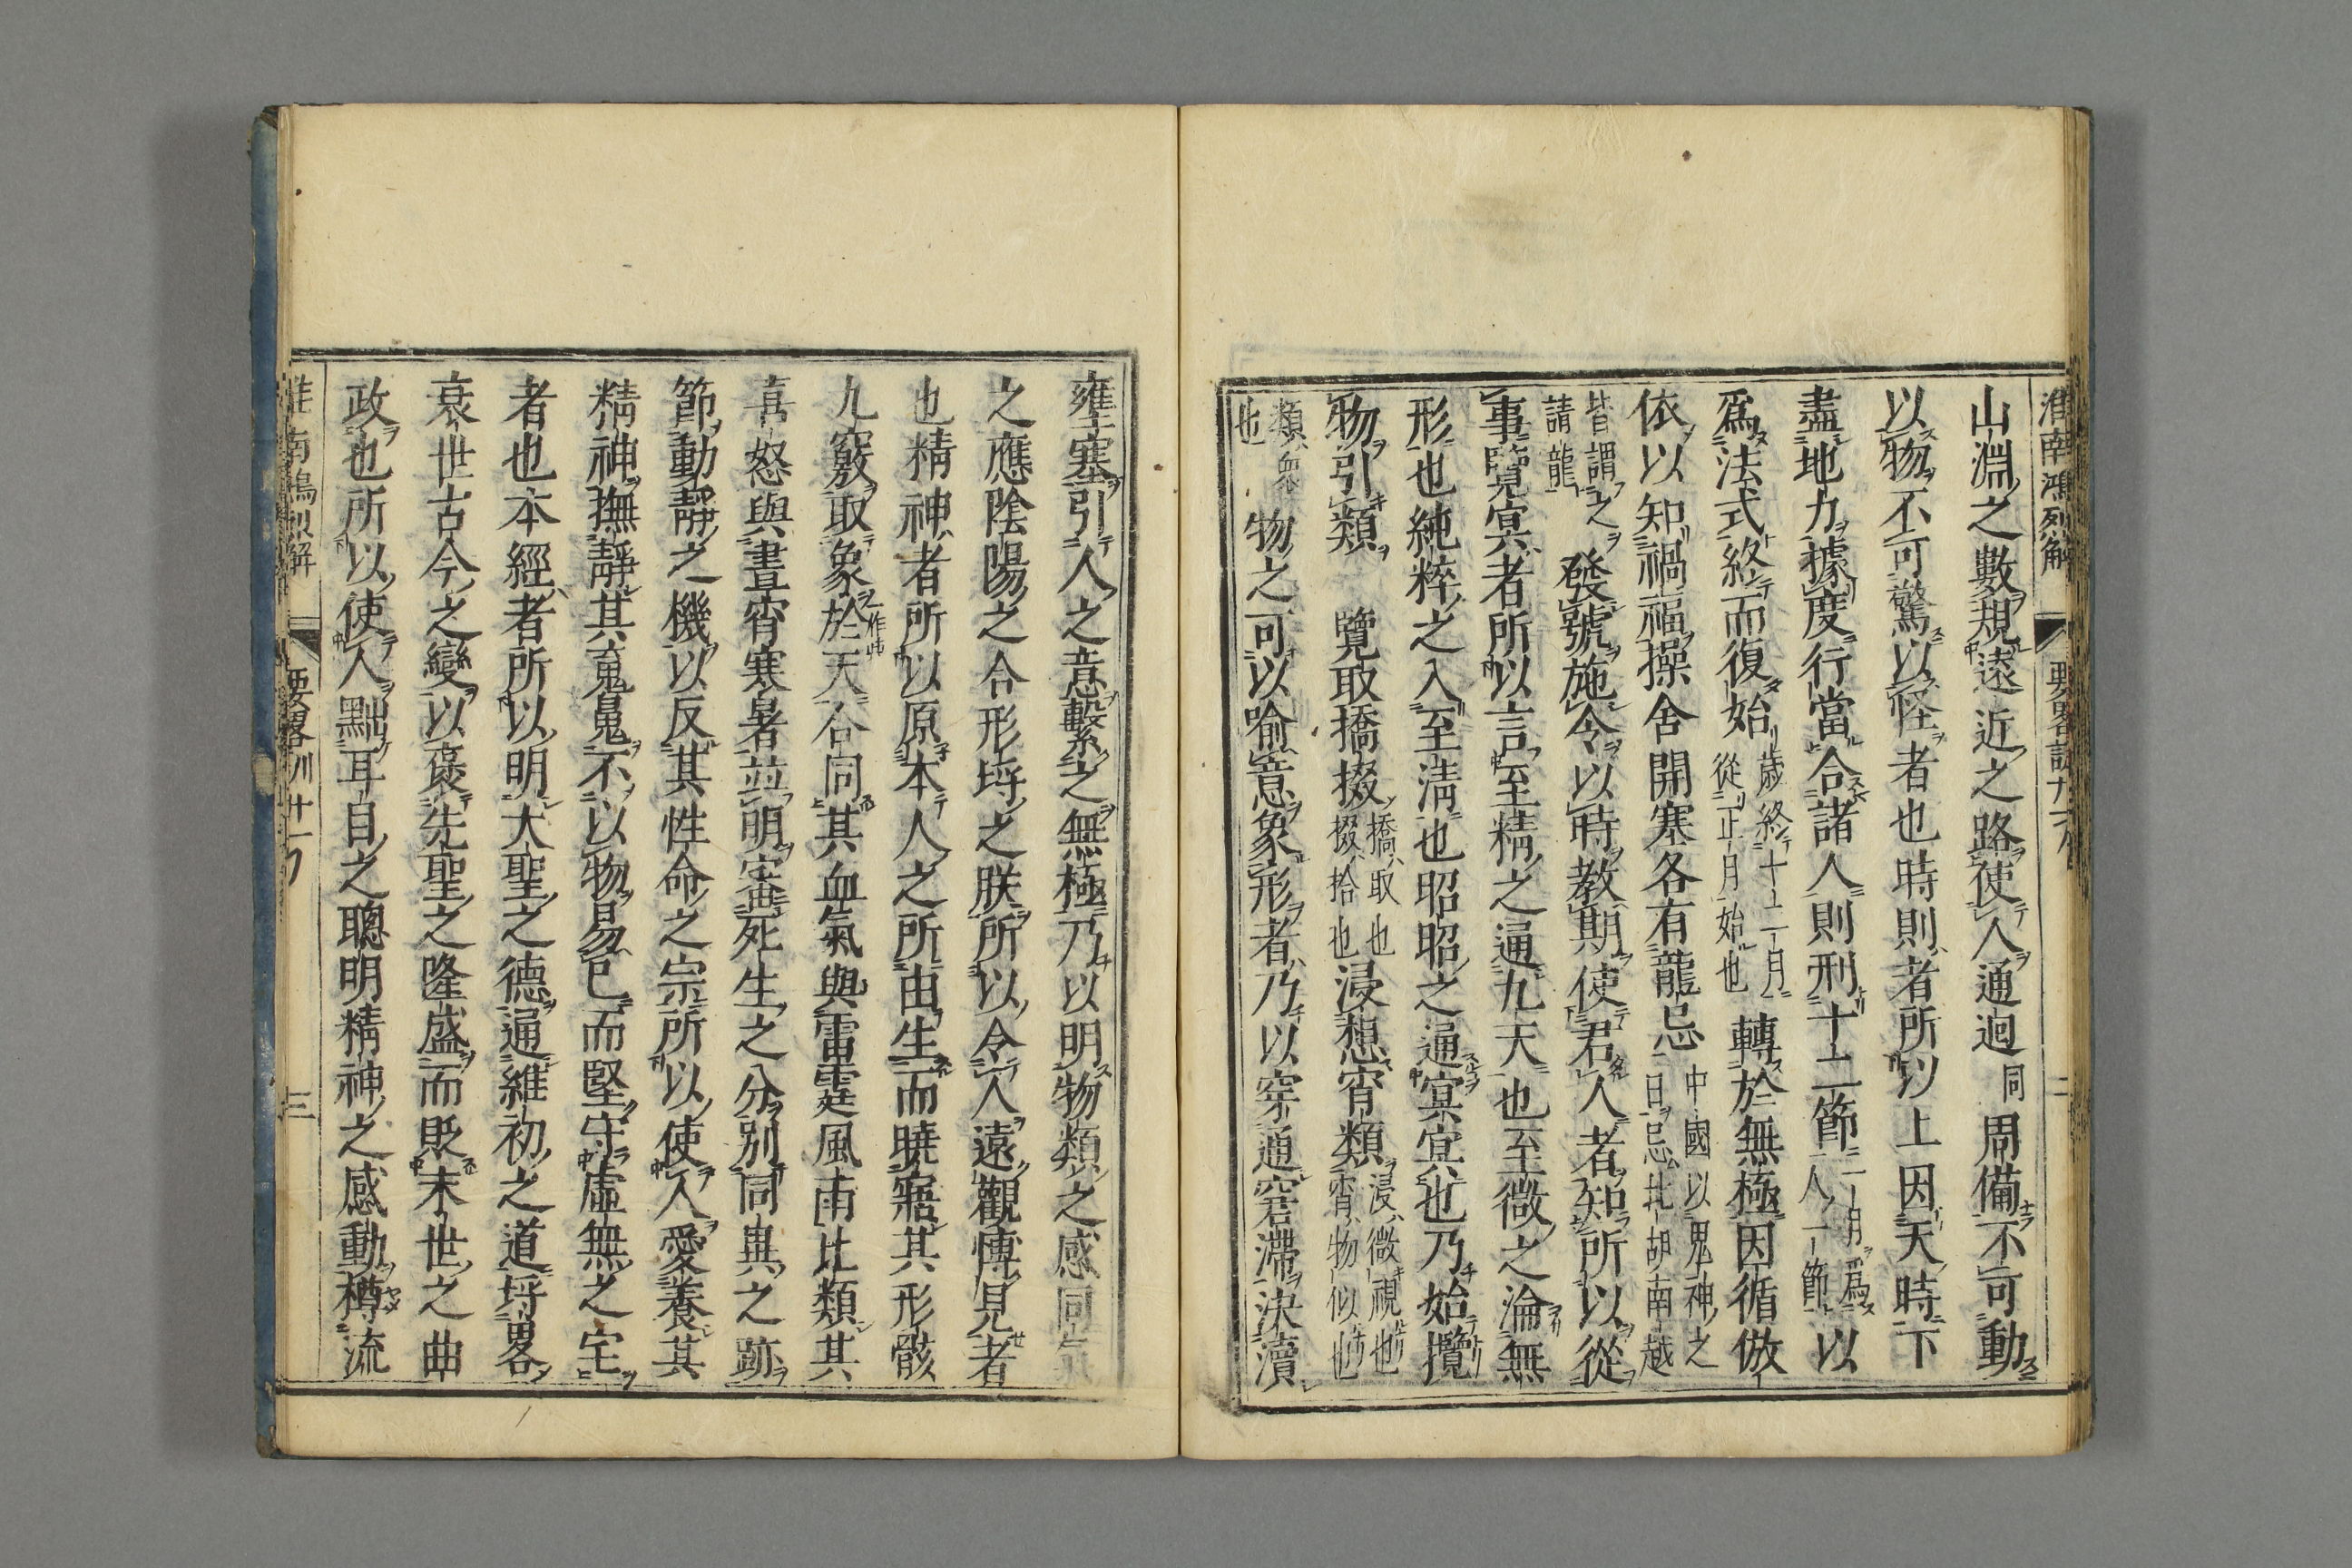 淮南鴻烈解
要畧訓
二
山淵之數規遠近之路使人通迵同周備不可動
以物不可驚以怪者也時則者所以上因天時下
盡地力據度行當合諸人則刑十二節一月爲人一節以
爲法式終而復始歲終十二月從正月始也轉於無極因循倣
依以知禍福操舍開塞各有龍忌中國以鬼神之日忌北胡南越
皆謂之請龍發號施令以時教期使君人者知所以從
事覽冥者所以言至精之通九天也至微之淪無
形也純粹之入至淸也昭昭之通冥冥也乃始攬
物引類覽取撟掇撟取也掇拾也浸想宵類浸微視也宵物似也
類衆也物之可以喻意象形者乃以穿通窘滯決瀆
壅塞引人之意繫之無極乃以明物類之感同氣
之應陰陽之合形埒之朕所以令人遠觀博見者
也精神者所以原本人之所由生而曉寤其形骸
九竅取象於天合同其血氣與雷霆風雨比類其
喜怒與晝宵寒暑並明審死生之分別同異之跡
節動靜之機以反其性命之宗所以使人愛養其
精神撫靜其䰟魄不以物易已而堅守虛無之宅
者也本經者所以明大聖之德通維初之道埒畧
衰世古今之變以褒先聖之隆盛而貶末世之曲
政也所以使人黜耳目之聰明精神之感動樽流
南鴻烈解
要畧訓
三